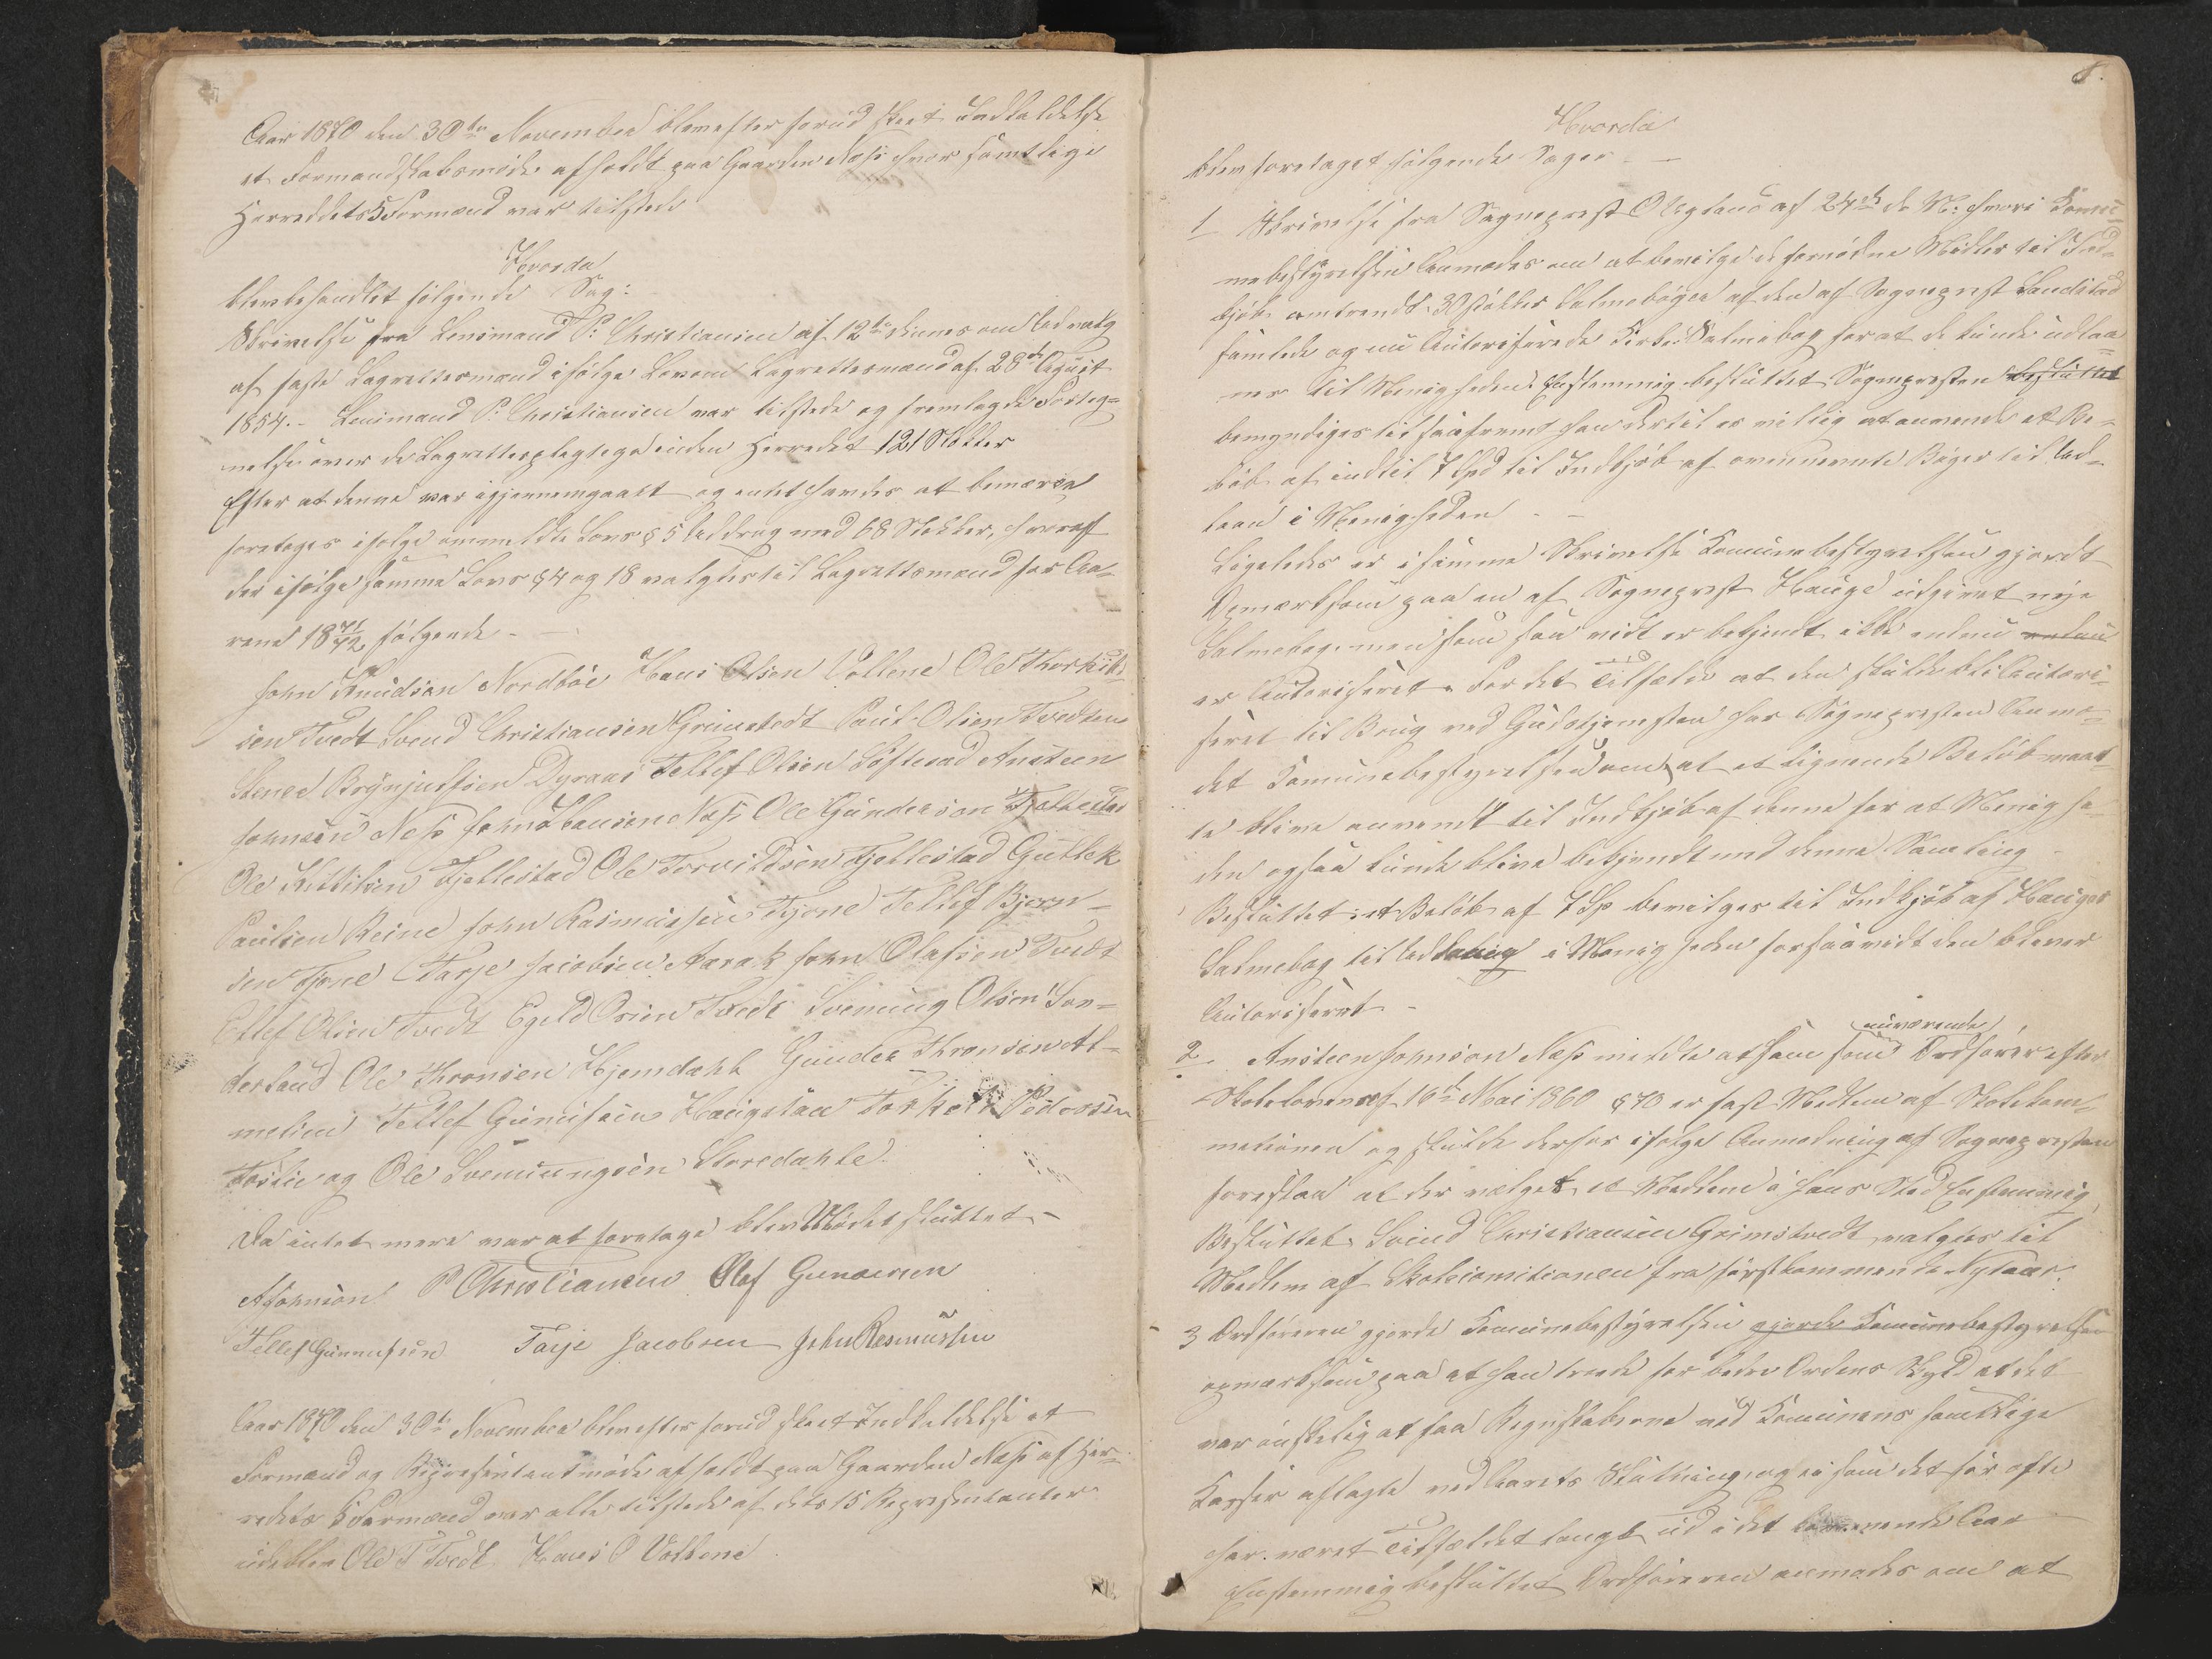 Aar 1870 den 30te November blev efter forud skeet Indkaldelse
et Formandskabsmøde afholdt paa Gaarden Næss hvor samtlige
Herreddets 5 Formænd var tilstede
Hvorda
blev behandlet følgende Sag:
Skrivelse fra Lensmand P. Christiansen af 12te om Udvalg
af faste Lagrettesmænd ifølge Lov om Lagrettesmænd af 28de August
1854. - Lensmand P. Christiansen var tilstede og fremlagde Forteg-
nelse over de Lagrettespligtige inden Herredet 121 Støkker
Efter at denne var igjennemgaaet og intet fandtes at bemærke
foretoges ifølge anmeldte Lovs § 5 Uddrag med 68 Støkker, hvoraf
der ifølge samme Lovs § 4 og 18 valgtes til Lagrettesmænd for Aa-
rene 1871/72 følgende -
John Knudsen Nordbøe Hans Olsen Vollene Ole Thorkils-
sen Tvedt Svend Christiansen Grimstvedt Paul Olsen Tvedten
Stener Brynjulfsen Dyraas Tellef Olsen Løftesad Ansteen
Johnsen Næss John Hansen Næss Ole Gundersen Fjellestad
Ole Kittilsen Fjellestad Ole Torvildsen Fjellestad Gullek
Paulsen Reine John Rasmussen Fjone Tellef Bjørn-
sen Fjone Tarje Jacobsen Aarak John Olafsen Tvedt
Ellef Olsen Tvedt Egeld Osien Tvedt Svenung Olsen Søn-
derland Ole Thronsen Hjemdahl Gunder Thronsen At-
melien Tellef Gunnufsen Haugelan Torkel Pedersen
Foslie og Ole Svenungsen Storedahle.
Da intet mere var at foretage blev Mødet sluttet -
A Johnson P Christiansen Olaf Gundersen
Tellef Gunnufsen Tarje Jacobsen John Rasmussen
Aar 1870 den 30te November blev efter forud skeet Indkaldelse et
Formænd og Repræsentantmøde afholdt paa Gaarden Næss af Her-
redets 5 Formænd var alle tilstede af dets 15 Repræsentanter
udeblev Ole T Tvedt Hans O Vollene
8.
Hvorda
blev foretaget følgende Sager -
1 Skrivelse fra Sogneprest O Ugland af 24de d. M: hvori Commu-
nebestyrelsen anmodes om at bevilge de fornødne Midler til Ind-
kjøb omtrendt 30 støkker Salmebøger af den af Sogneprest Landstad
samlede og nu Autoriserede Kirke Salmebog for at de kunde udlaa-
nes til Menigheden. Enstemmig besluttet Sognepresten besluttet
bemyndiges til saafremt han dertil er villig at anvende et Be-
løb af indtil 7 Spd til Indkjøb af ovennevnte Bøger til Ud-
laan i Menigheden -
Ligeledes er i samme Skrivelse Komunebestyrelsen gjordt
Opmærksom paa en af Sogneprest Hauge udgivet nye
Salmebog, men som saa vidt er bekjendt ikke endnu endnu
er Autoriseret. For det Tilfælde at den skulde bli Autori-
seret til Brug ved Gudstjenesten har Sognepresten Anmo-
det Komunebestyrelsen om at et lignende Beløb maat-
te blive anvendt til Indkjøb af denne for at Menighe-
den ogsaa kunde blive bekjendt med denne Samling -
Besluttet: et Beløb af 7 Sp bevilges til Indkjøb af Hauges
Salmebog til Uddeling i Menigheden forsaavidt den bliver
Autoriseret -
2 Ansteen Johnson Næss meldte at han som nuværende Ordfører efter
Skoleloven af 16de Mai 1860 § 70 er fast Medlem af Skolekom-
misionen og skulde derfor ifølge Anmodning af Sognepresten
foreslaa at der velges et Medlem i hans Sted Enstemmig
Besluttet. Svend Christiansen Grimstvedt valgtes til
Medlem af Skolecomitionen fra førstkommende Nytaar.
3 Ordføreren gjorde Komunebestyrelsen gjorde Komunebestyrelsen
opmærksom paa at han troede for bedre Ordens Skyld at det
var ønskelig at faa Regnskaberne ved Komunens samtlige
Kasser aflagte ved Aarets Slutning, og ei som det før ofte
har været Tilfældet langt ud i det kommende Aar
Enstemmig besluttet Ordføreren anmodes om at